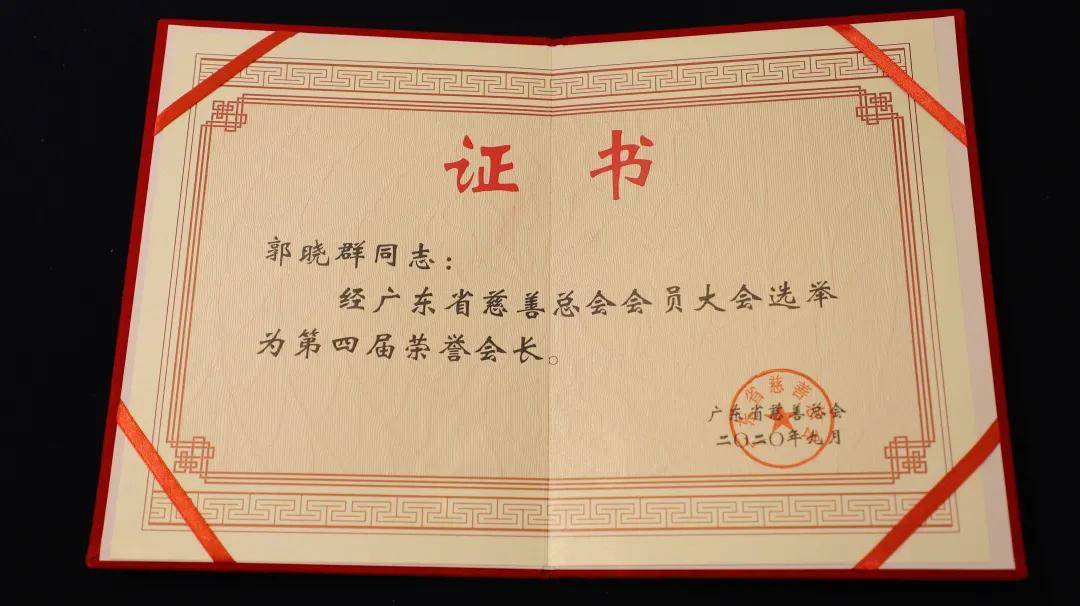 证书
郭晓群同志：
经广东省慈善总会会员大会选举
为第四届荣誉会长。
广东省慈善总会
二〇二〇年九月